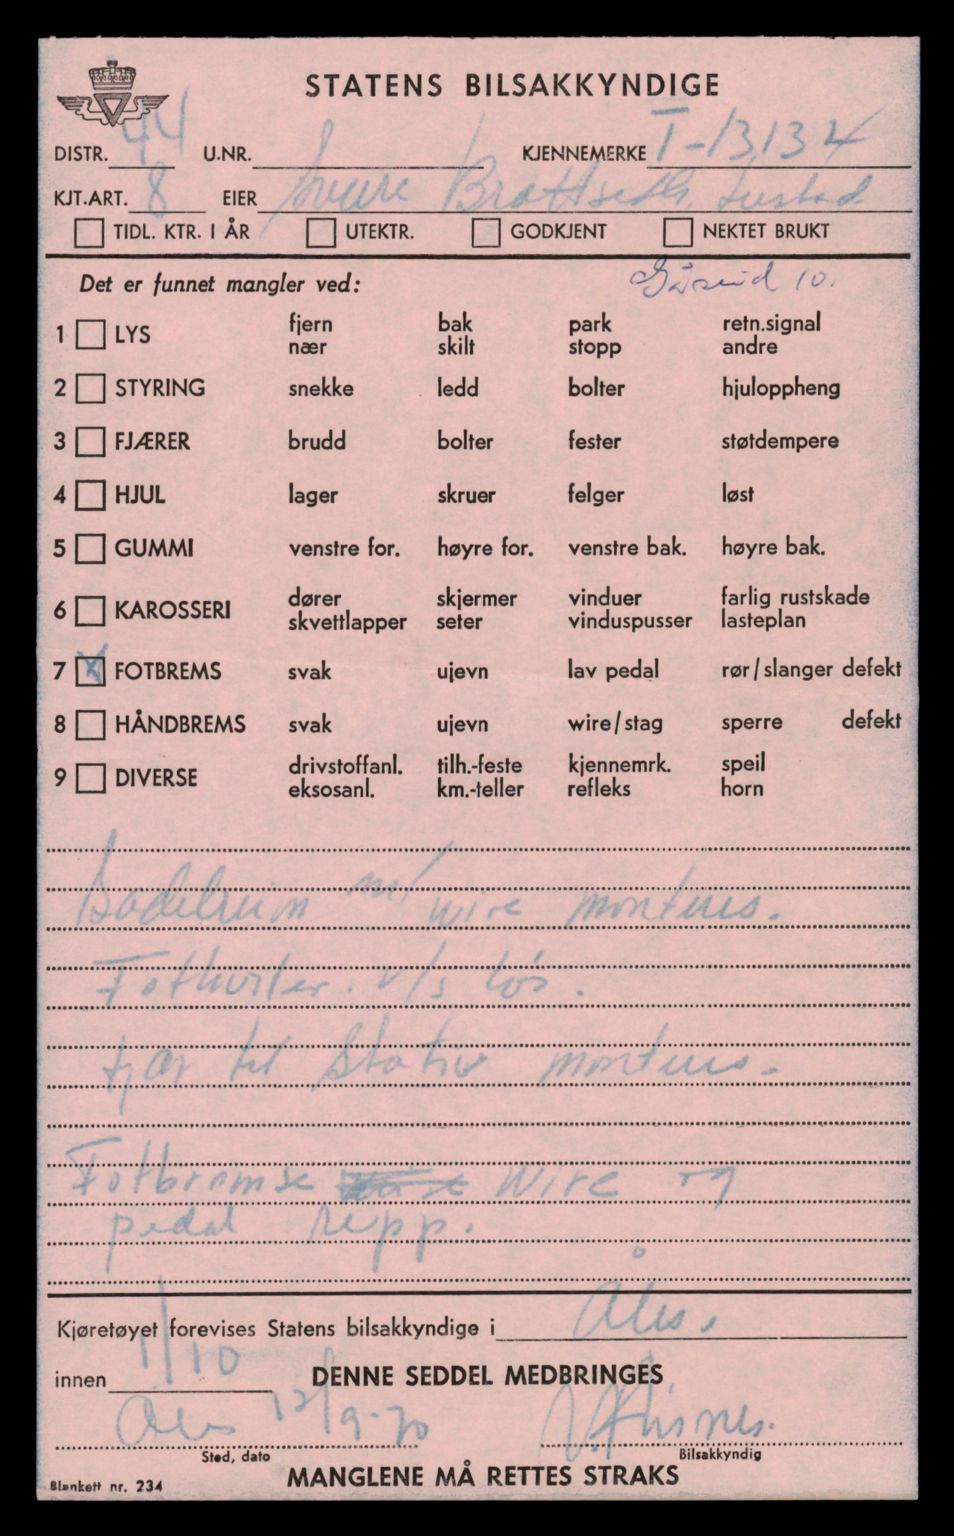 STATENS BILSAKKYNDIGE
DISTR. 44 U.NR. KJENNEMERKE T-13134
KJT.ART. 8 EIER Brattseth,
TIDL. KTR. I ÅR UTEKTR. GODKJENT NEKTET BRUKT
Det er funnet mangler ved: 10.
1 LYS fjern bak park retn.signal
nær skilt stopp andre
2 STYRING snekke ledd bolter hjuloppheng
3 FJÆRER brudd bolter fester støtdempere
4 HJUL lager skruer felger løst
5 GUMMI venstre for. høyre for. venstre bak. høyre bak.
6 KAROSSERI dører skjermer vinduer farlig rustskade
skvettlapper seter vinduspusser lasteplan
7 X FOTBREMS svak ujevn lav pedal rør/slanger defekt
8 HÅNDBREMS svak ujevn wire/stag sperre defekt
9 DIVERSE drivstoffanl. tilh.-feste kjennemrk. speil
eksosanl. km.-teller refleks horn
m/ wire monteres.
Fothviler. v/s løs.
Fjær til stativ monteres.
Fotbremse wire og
pedal repp.
Kjøretøyet forevises Statens bilsakkyndige i Åles.
innen 1/10 DENNE SEDDEL MEDBRINGES
Åles 12/9-70
Sted, dato Bilsakkyndig
Blankett nr. 234 MANGLENE MÅ RETTES STRAKS